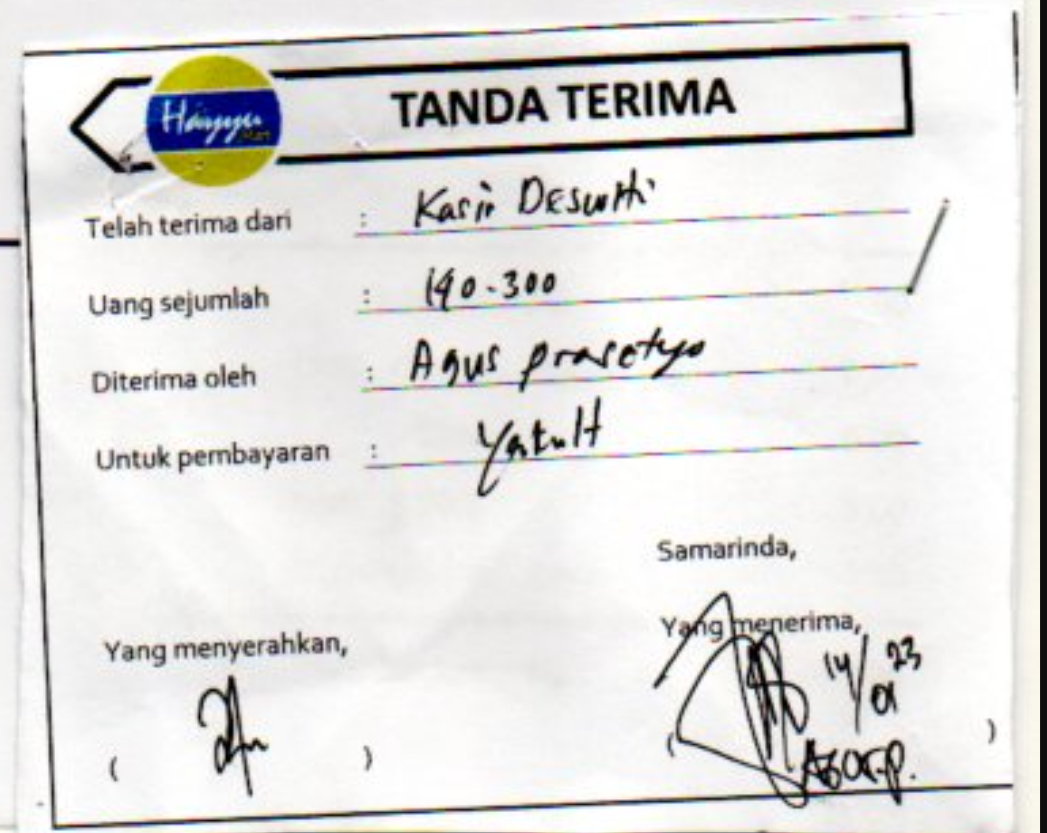 Hayyu
Mart
TANDA TERIMA
Telah terima dari : Kasir
Uang sejumlah : 190.300
Diterima oleh : Agus prasetyo
Untuk pembayaran : Yakult
Samarinda,
Yang menyerahkan, Yang menerima,
14/01 23
( ) ( )
AGUS.P.